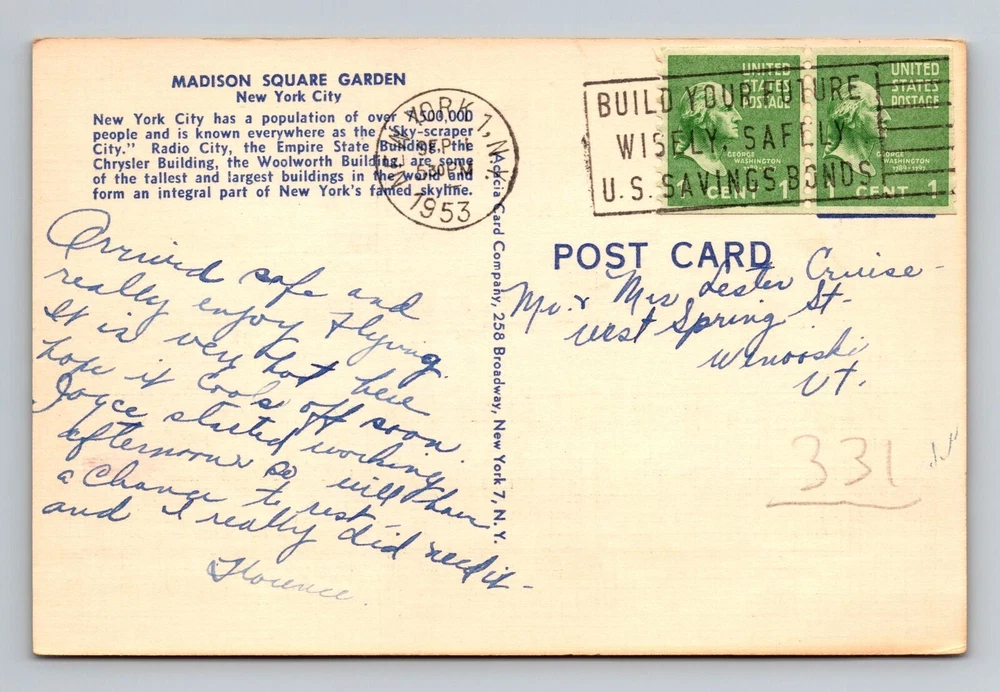 MADISON SQUARE GARDEN
New York City
New York City has a population of over 7,500,000
people and is known everywhere as the "Sky-scraper
City." Radio City, the Empire State Building, the
Chrysler Building, the Woolworth Building, are some
of the tallest and largest buildings in the world and
form an integral part of New York's famed skyline.
Arrived safe and
really enjoy Flying.
It is very hot here
hope it cools off soon.
Joyce started working
afternoons so will have
a chance to rest
and I really did need it-
Florence.
Acacia Card Company, 258 Broadway, New York 7, N. Y.
NEW YORK 1, N.Y.
SEP
530PM
1953
BUILD YOUR FUTURE
WISELY, SAFELY
U.S. SAVINGS BONDS
UNITED
STATES
POSTAGE
GEORGE
WASHINGTON
1789-1797
1 CENT 1
UNITED
STATES
POSTAGE
GEORGE
WASHINGTON
1789-1797
1 CENT 1
POST CARD
Mr. & Mrs Lester Cruise-
West Spring St-
Winooski
Vt.
331